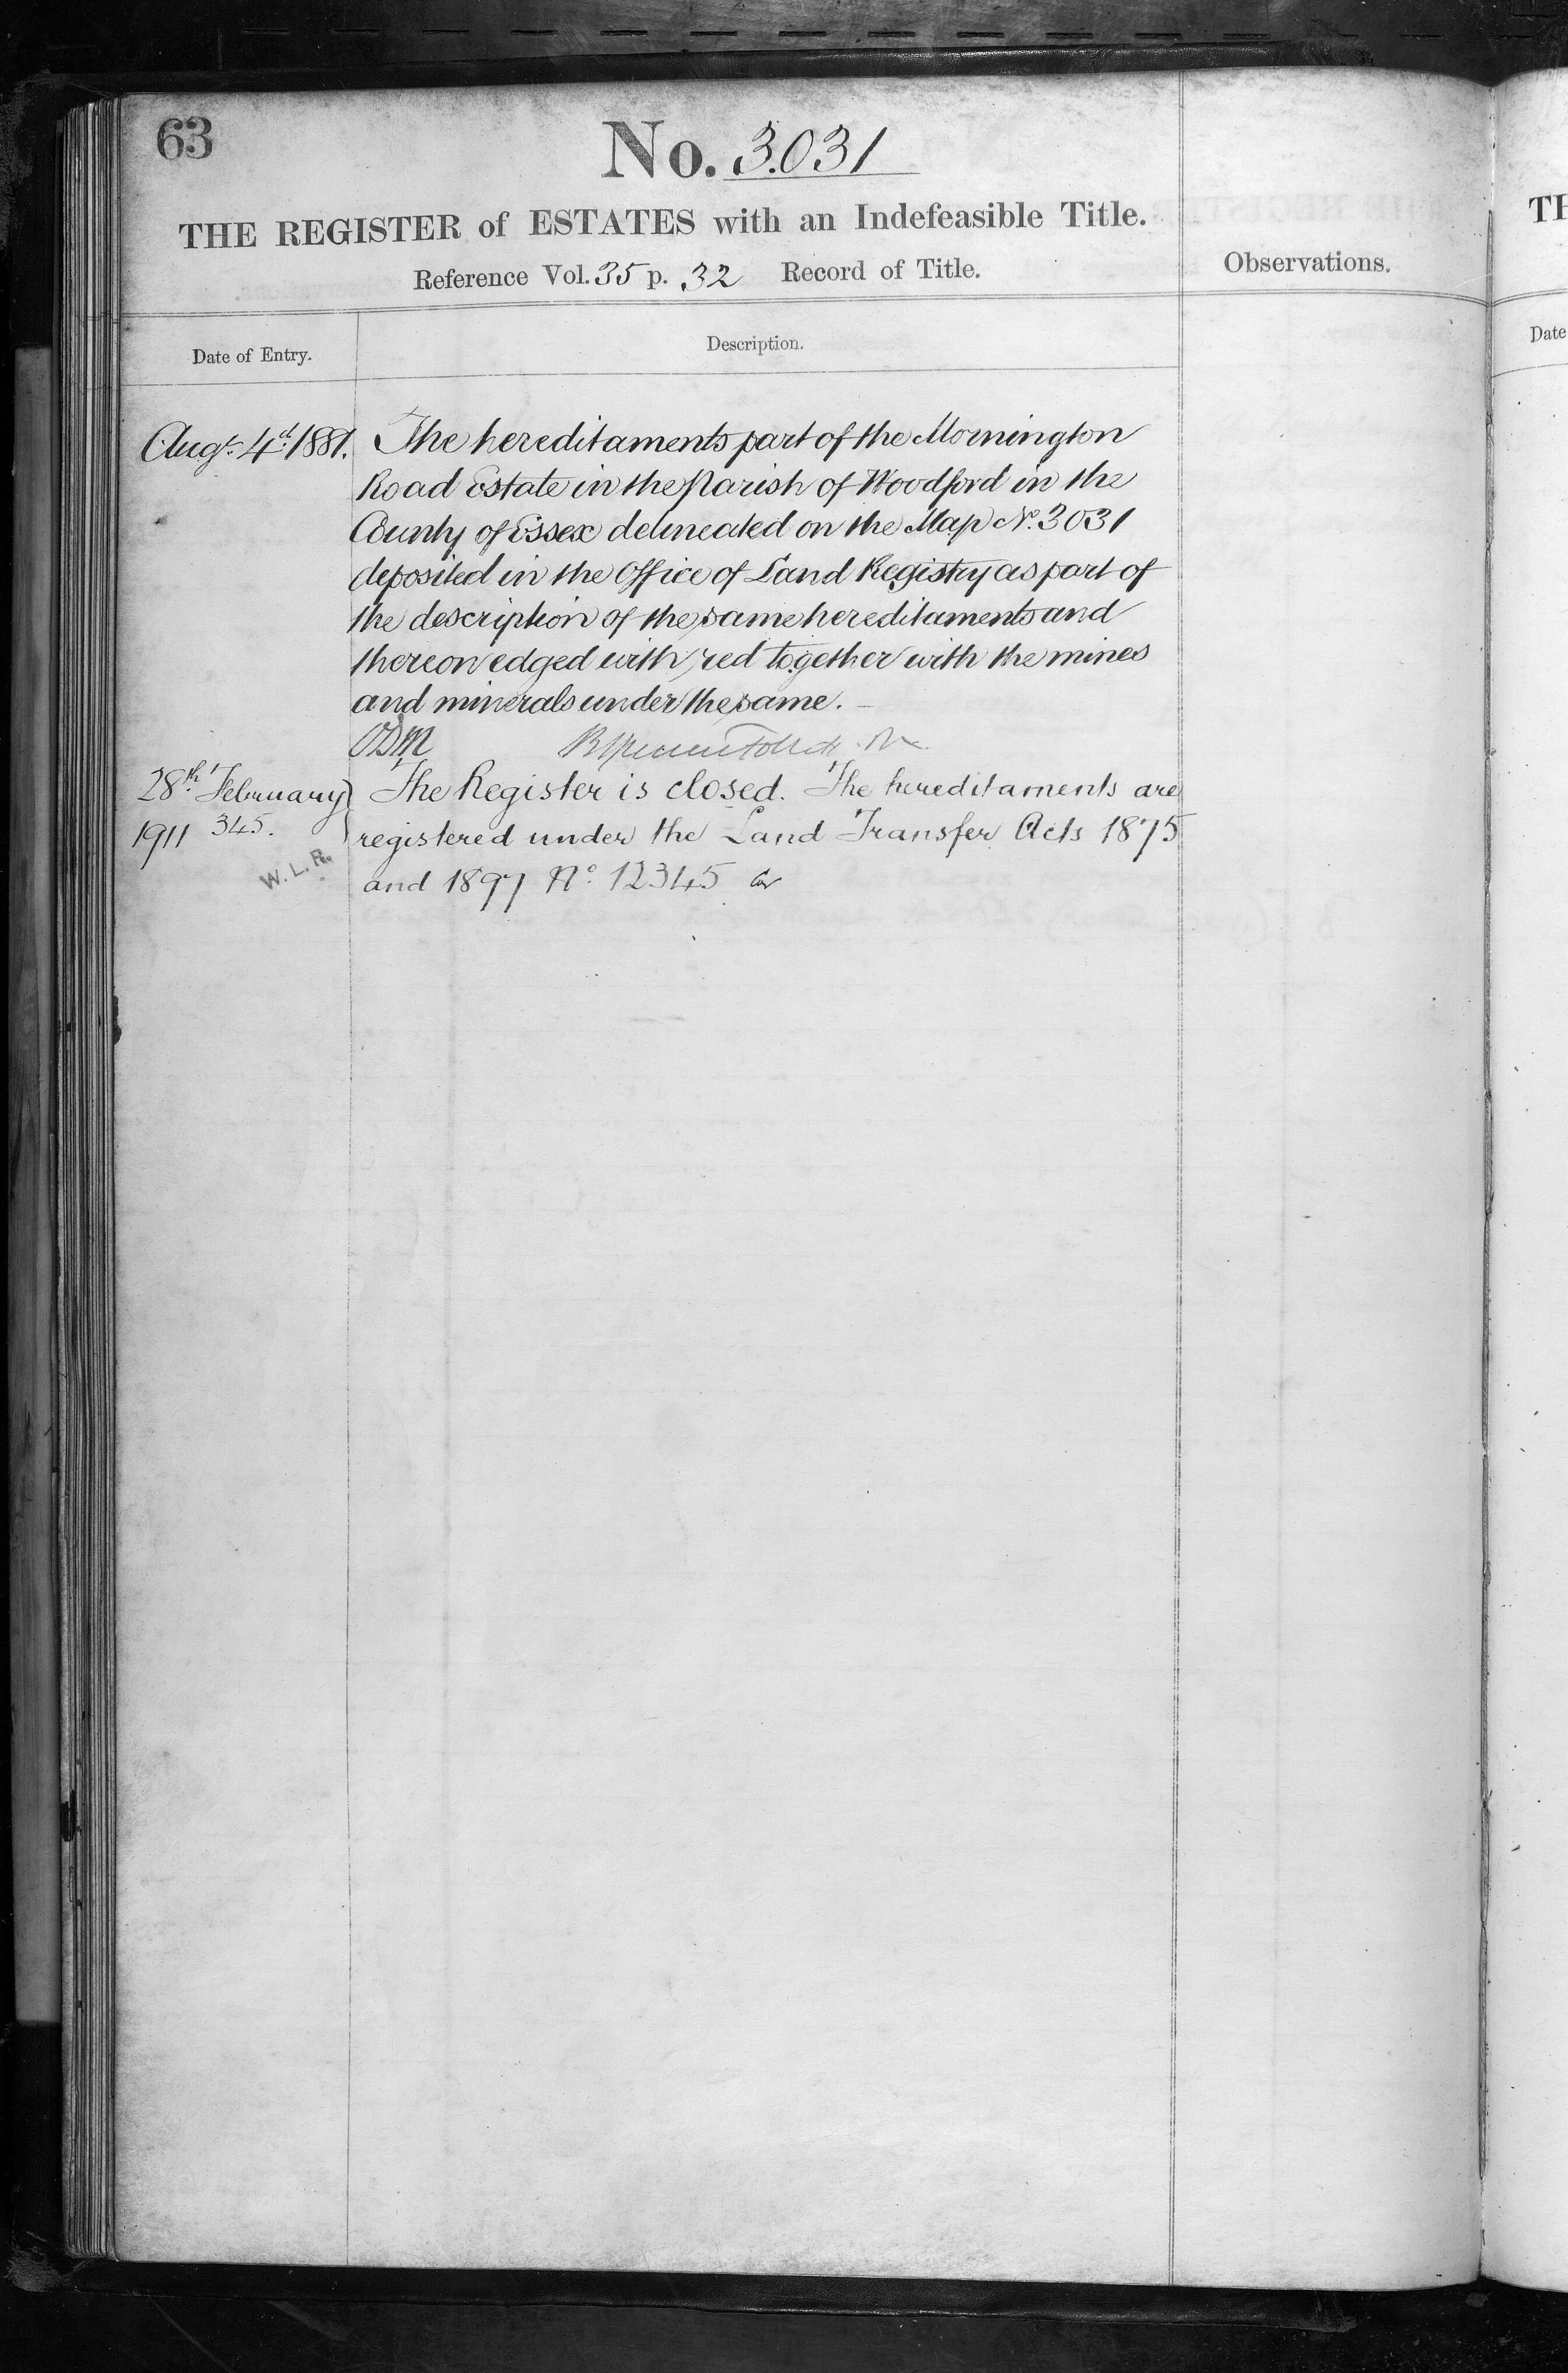 63
No. 3031
THE REGISTER of ESTATES with an Indefeasible Title.
Reference Vol. 35 p. 32 Record of Title.
Observations.
Date of Entry.
Description.
Augt. 4th 1881. The hereditaments part of the Mornington
Road Estate in the Parish of Woodford in the
County of Essex delineated on the Map No. 3031
deposited in the Office of Land Registry as part of
the description of the same hereditaments and
thereon edged with red together with the mines
and minerals under the same.
28th February The Register is closed. The hereditaments are
1911 345. registered under the Land Transfer Acts 1875
W. L. R. and 1897 No. 12345
TH
Date